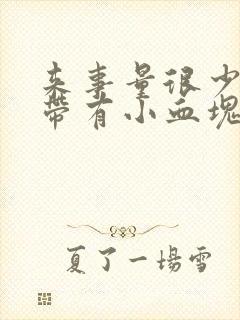 来事量很少
带有小血塊
夏了一場雪